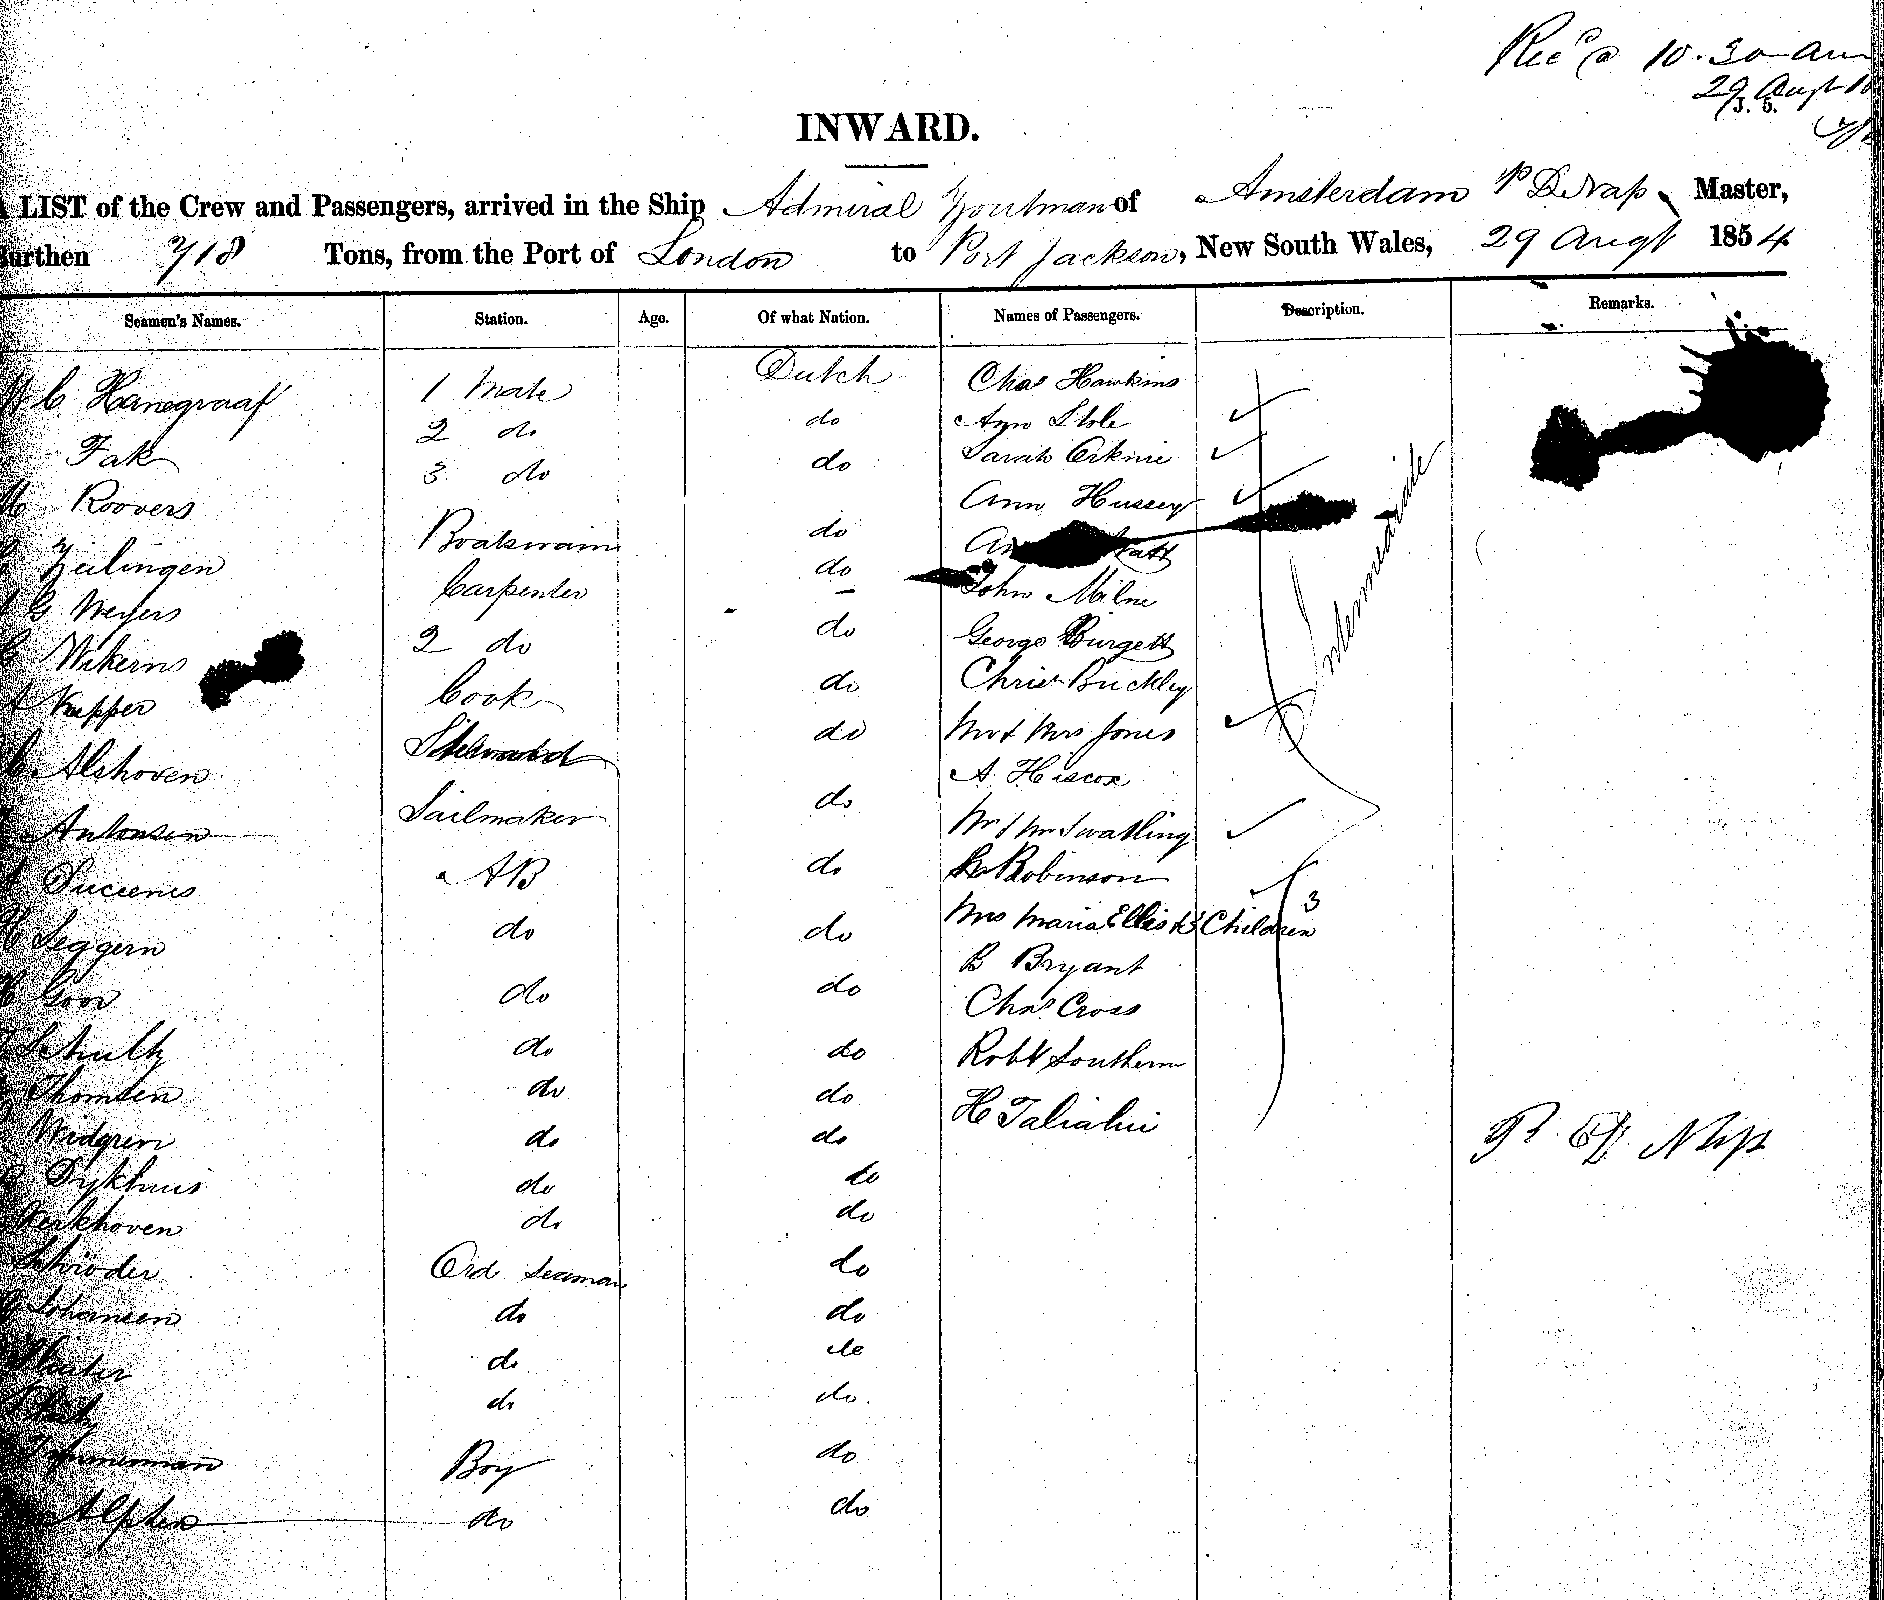 Recd @ 10.30 am
29 Augt
INWARD.
LIST of the Crew and Passengers, arrived in the Ship Admiral Zoutman of Amsterdam Master,
urthen 718 Tons, from the Port of London to Port Jackson, New South Wales, 29 Augt 1854
Seamen's Names. Station. Age. Of what Nation. Names of Passengers. Description. Remarks.
C. Hanegraaf 1 Mate Dutch Chas Hawkins
Fak 2 do do
Roovers 3 do do Sarah
Zeilingen Boatswain do Ann Hussey
G Meyers Carpenter do John Milne
Wikerns 2 do do George Burgett
Kupper Cook do Chris Buckley
Alshoven Steward do Mr & Mrs Jones
A. Hiscox
Antonsen Sailmaker do Mr & Mrs Swatling
AB do Robinson
Seggern do do Mrs Maria Ellis & 3 Children 3
Goor do do B Bryant
Chas Cross
Schultz do do Robt Southern
Thomsen do do H
Widgren do do
Dykhuis do do
Kerkhoven do do
Schroder Ord Seaman do
Johansen do do
do do
do do
Boy do
do do
Intermediate